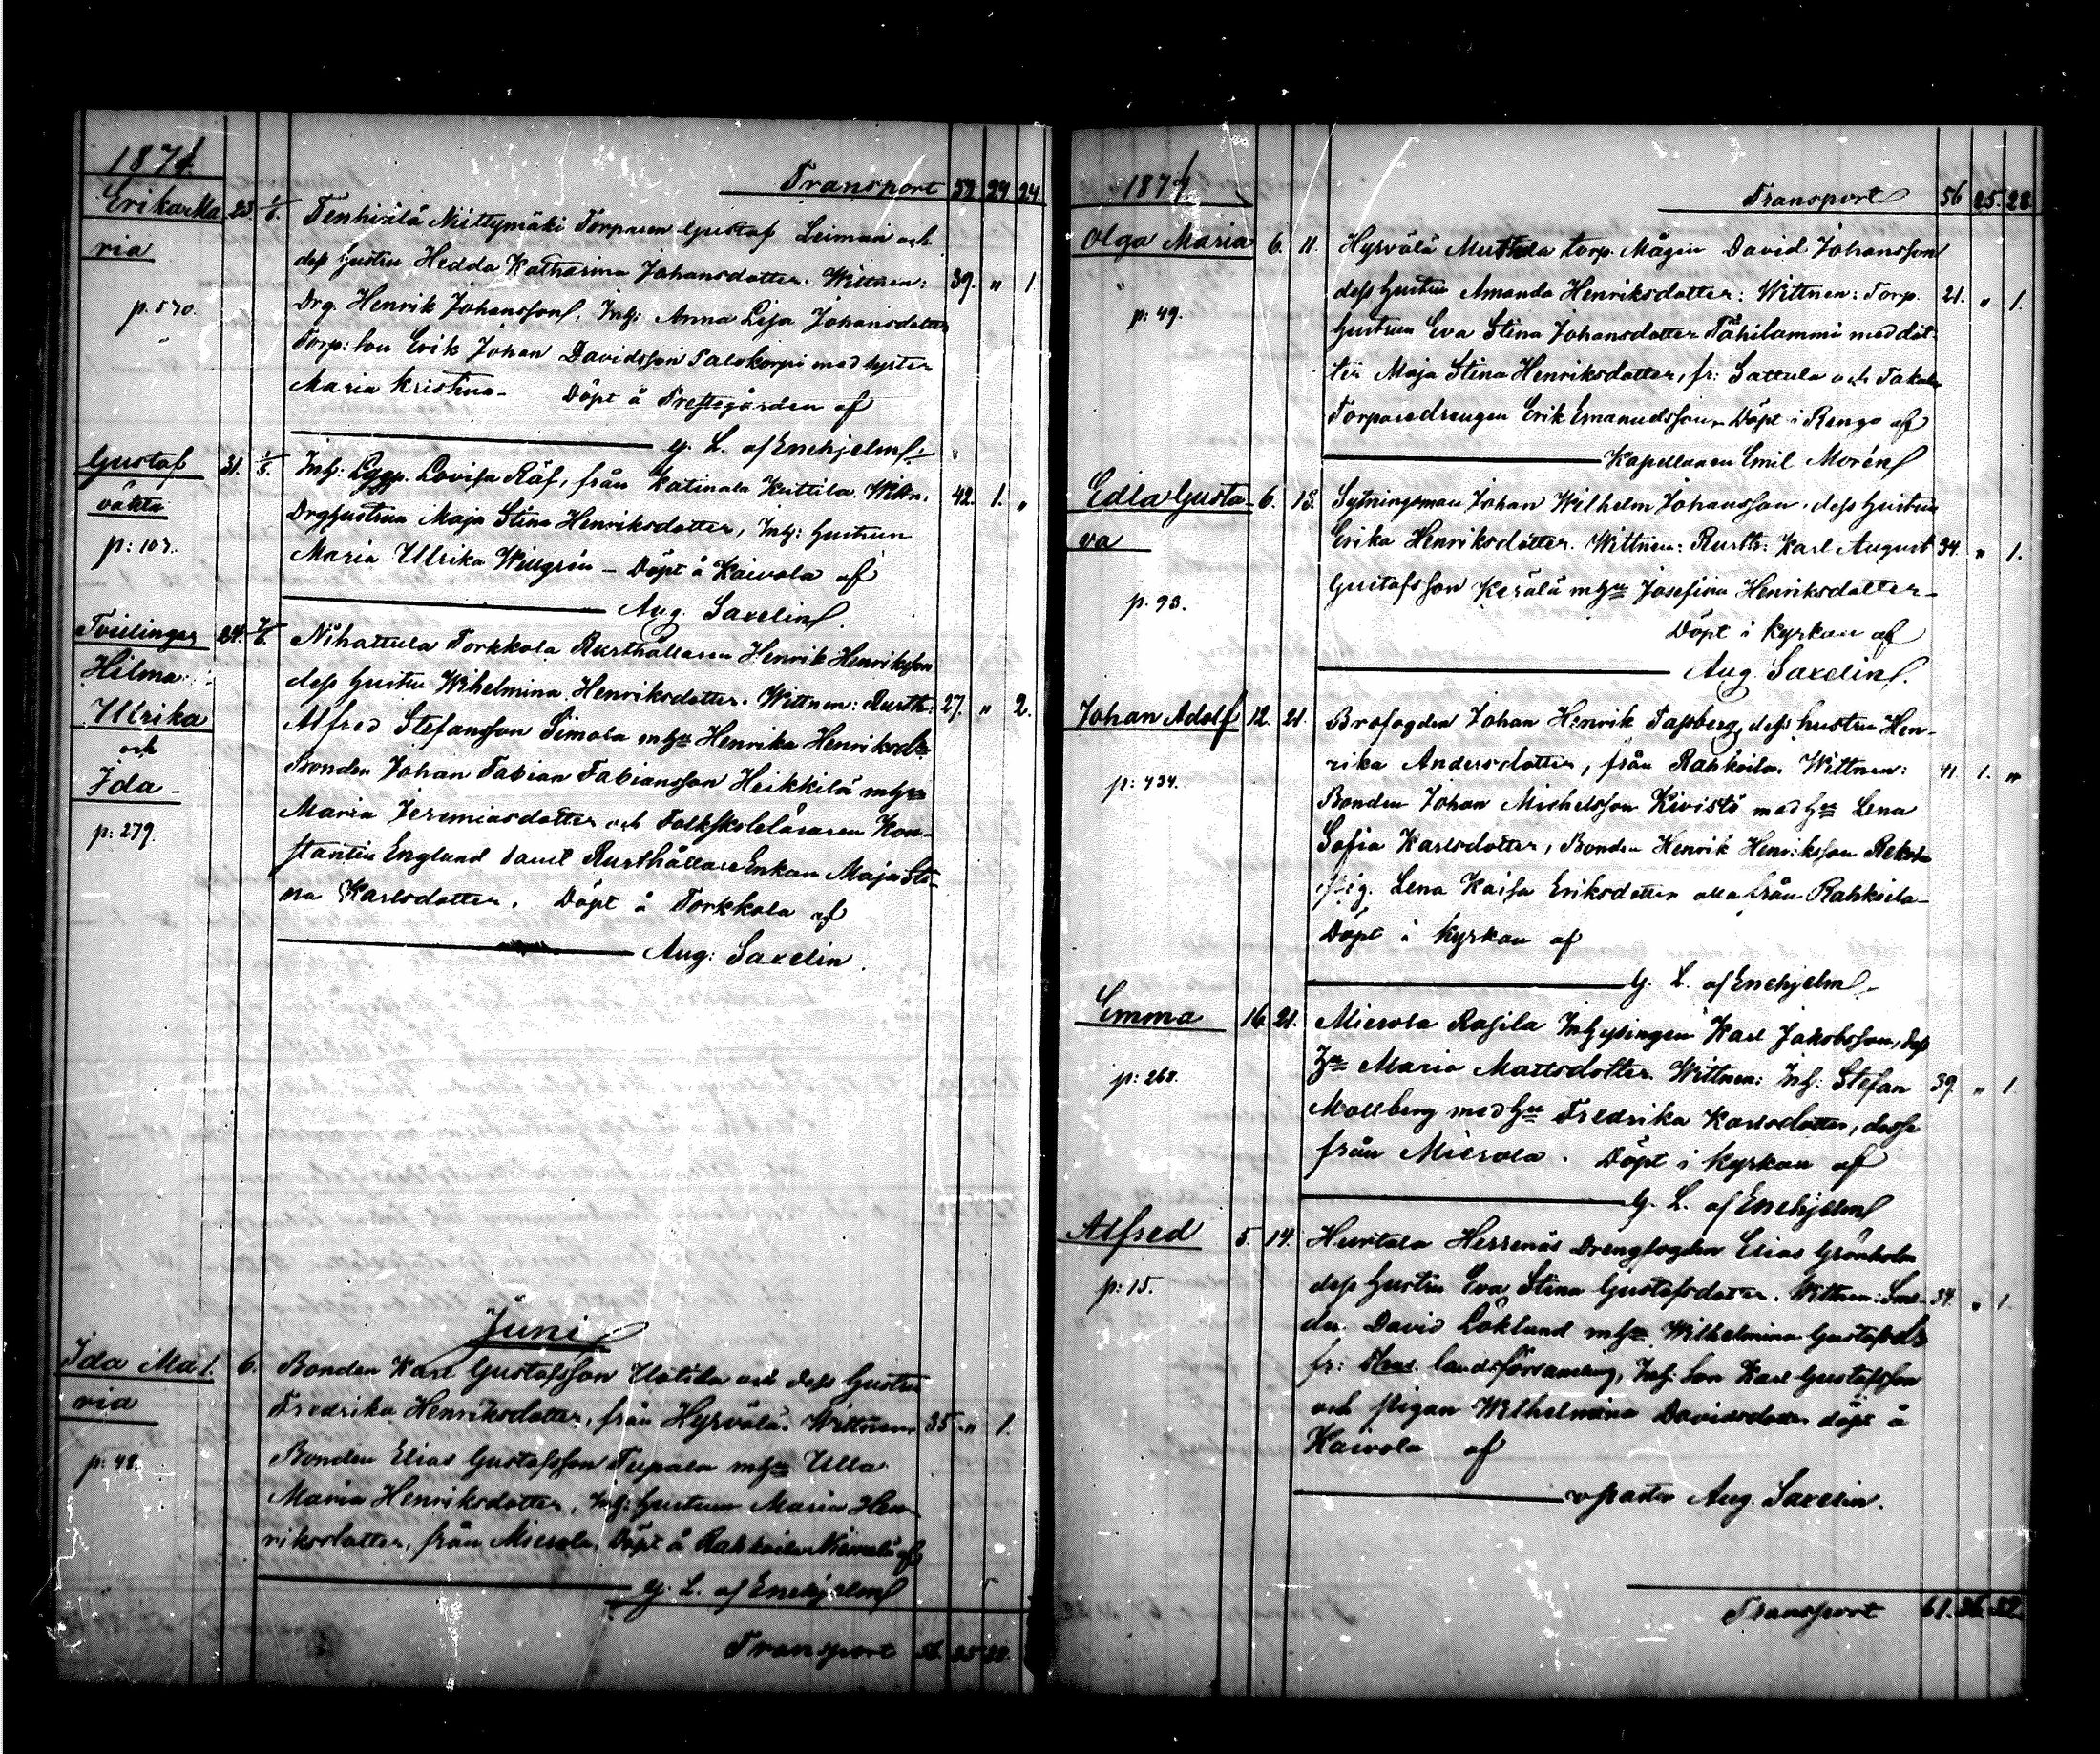 1874.
Transport 52 24 24.
Erika Ma 23 1/6. Tenhiälä Niittymäki Torparen Gustaf Leiman och
ria
dess hustru Hedda Katharina Johansdotter. Wittnen: 39. " 1
p. 570. Drg. Henrik Johansson, Inh: Anna Lisa Johansdotter
Torp: son Erik Johan Davidsson Palokorpi med syster
Maria Kristina – Döpt å Prestegården af
G. L. af Enehjelm.
Gustaf 31. 1/6. Inh: Lovisa Räf, från Katinala Kuttila. Wittn. 42. 1. "
väkta
Drghustrun Maja Stina Henriksdotter, Inh: hustrun
p: 107. Maria Ulrika Willgrén – Döpt å Kaivola af
Aug. Saxelin.
Tvillingar 24. 7/6. Nihattula Torkkola Rusthållaren Henrik Henriksson
Hilma
dess hustru Wilhelmina Henriksdotter. Wittnen: Rusth: 27. " 2.
Ulrika
Alfred Stefansson Simola mhu Henrika Henriksdr
och
Bonden Johan Fabian Fabiansson Heikkilä mhu
Ida –
Maria Jeremiasdotter och Folkskoleläraren Kon-
p: 279.
stantin Englund samt Rusthållare Enkan Maja Sti-
na Karlsdotter. Döpt å Torkkola af
Aug: Saxelin.
Juni
Ida Ma 1. 6. Bonden Karl Gustafsson Ulotila och dess hustru
ria
Fredrika Henriksdotter, från Hyrvälä. Wittnen: 35. " 1.
p: 48. Bonden Elias Gustafsson Tupala mhu Ulla
Maria Henriksdotter, Inh: hustrun Maria Hen-
riksdotter, från Miemola. Döpt å Rahkoila af
G. L. af Enehjelm
Transport 56. 25 28.
1874
Transport 56 25. 28.
Olga Maria 6. 11. Hyrvälä Mustala torp. Mågen David Johansson
dess hustru Amanda Henriksdotter: Wittnen: Torp. 21. " 1.
p: 49. hustrun Eva Stina Johansdotter Tähilammi med dot-
ter Maja Stina Henriksdotter, fr: Sattula och Takala
Torparedrengen Erik Emanuelsson, Döpt i Rengo af
Kapellanen Emil Morén
Edla Gusta- 6. 15. Sytningsman Johan Wilhelm Johansson, dess hustru
va
Erika Henriksdotter. Wittnen: Rusth: Karl August 34. " 1.
p. 93. Gustafsson Kerälä mhu Josefina Henriksdotter –
Döpt i kyrkan af
Aug. Saxelin.
Johan Adolf 12. 21. Brofogden Johan Henrik Tapberg, dess hustru Hen-
rika Andersdotter, från Rahkoila. Wittnen: 41. 1. "
p: 434. Bonden Johan Michelsson Kivistö med hu Lena
Sofia Karlsdotter, Bonden Henrik Henriksson Rekola
pig. Lena Kaisa Eriksdotter alla från Rahkoila –
Döpt i kyrkan af
G. L. af Enehjelm.
Emma 16. 21. Miemola Rasila Inhysingen Karl Jakobsson, dess
hu Maria Mattsdotter. Wittnen: Inh: Stefan 39. " 1.
p: 268. Mollberg med hu Fredrika Karlsdotter, desse
från Miemola. Döpt i kyrkan af
G. L. af Enehjelm
Alfred 5. 14. Hurtala Herrenäs Drengfogden Elias Grönholm
dess hustru Eva Stina Gustafsdotter. Wittnen: Sme- 34. " 1.
p: 15.
den David Löklund mhu Wilhelmina Gustafsdr
fr: landsförsamling, Inh: son Karl Gustafsson
och pigan Wilhelmina Davidsdotter döpt å
Kaivola af
v pastor Aug. Saxelin.
Transport 61. 26. 32.